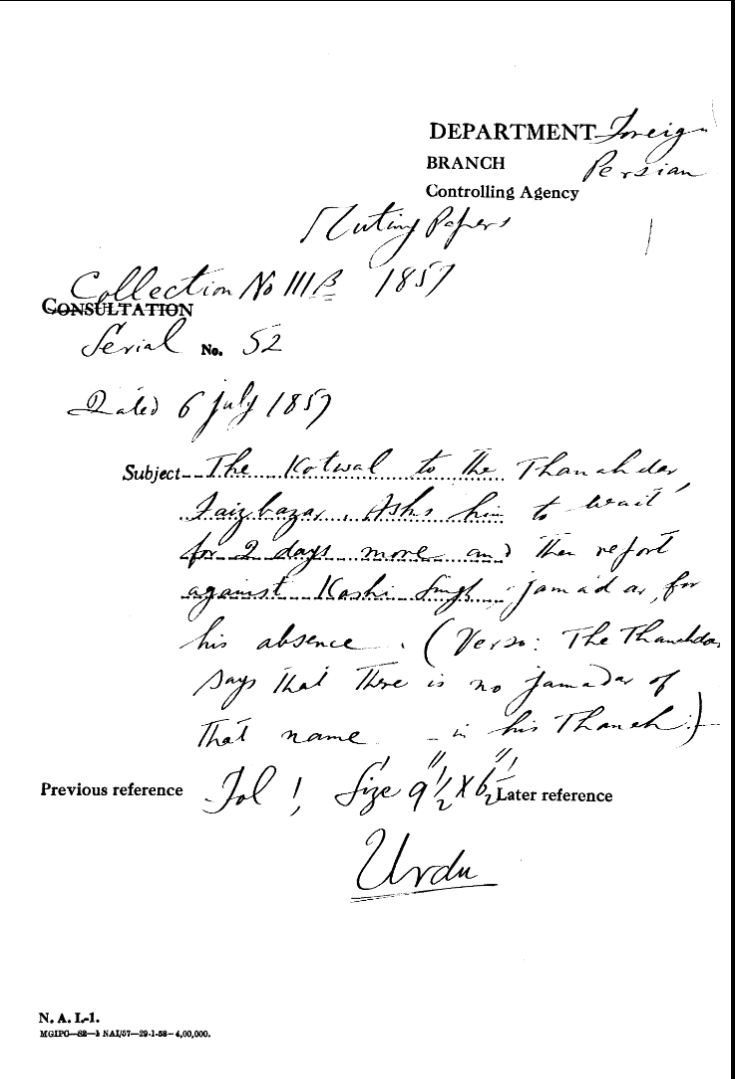 DEPARTMENT Foreign
BRANCH Persian
Controlling Agency
Mutiny Papers
Collection No III B 1857
CONSULTATION
Serial No. 52
Dated 6 July 1857
Subject The Kotwal to the Thanahdar
Faizbazar. Asks him to wait
for 2 days more and then report
against Kashi Singh jamadar, for
his absence. (Verso: The Thanahdar
says that there is no jamadar of
that name in his Thanah.)
Previous reference Fol 1, Size 9½" X 6½" Later reference
Urdu
N. A. I.-1.
MGIPC—S2—1 NAI/57—29-1-58—4,00,000.